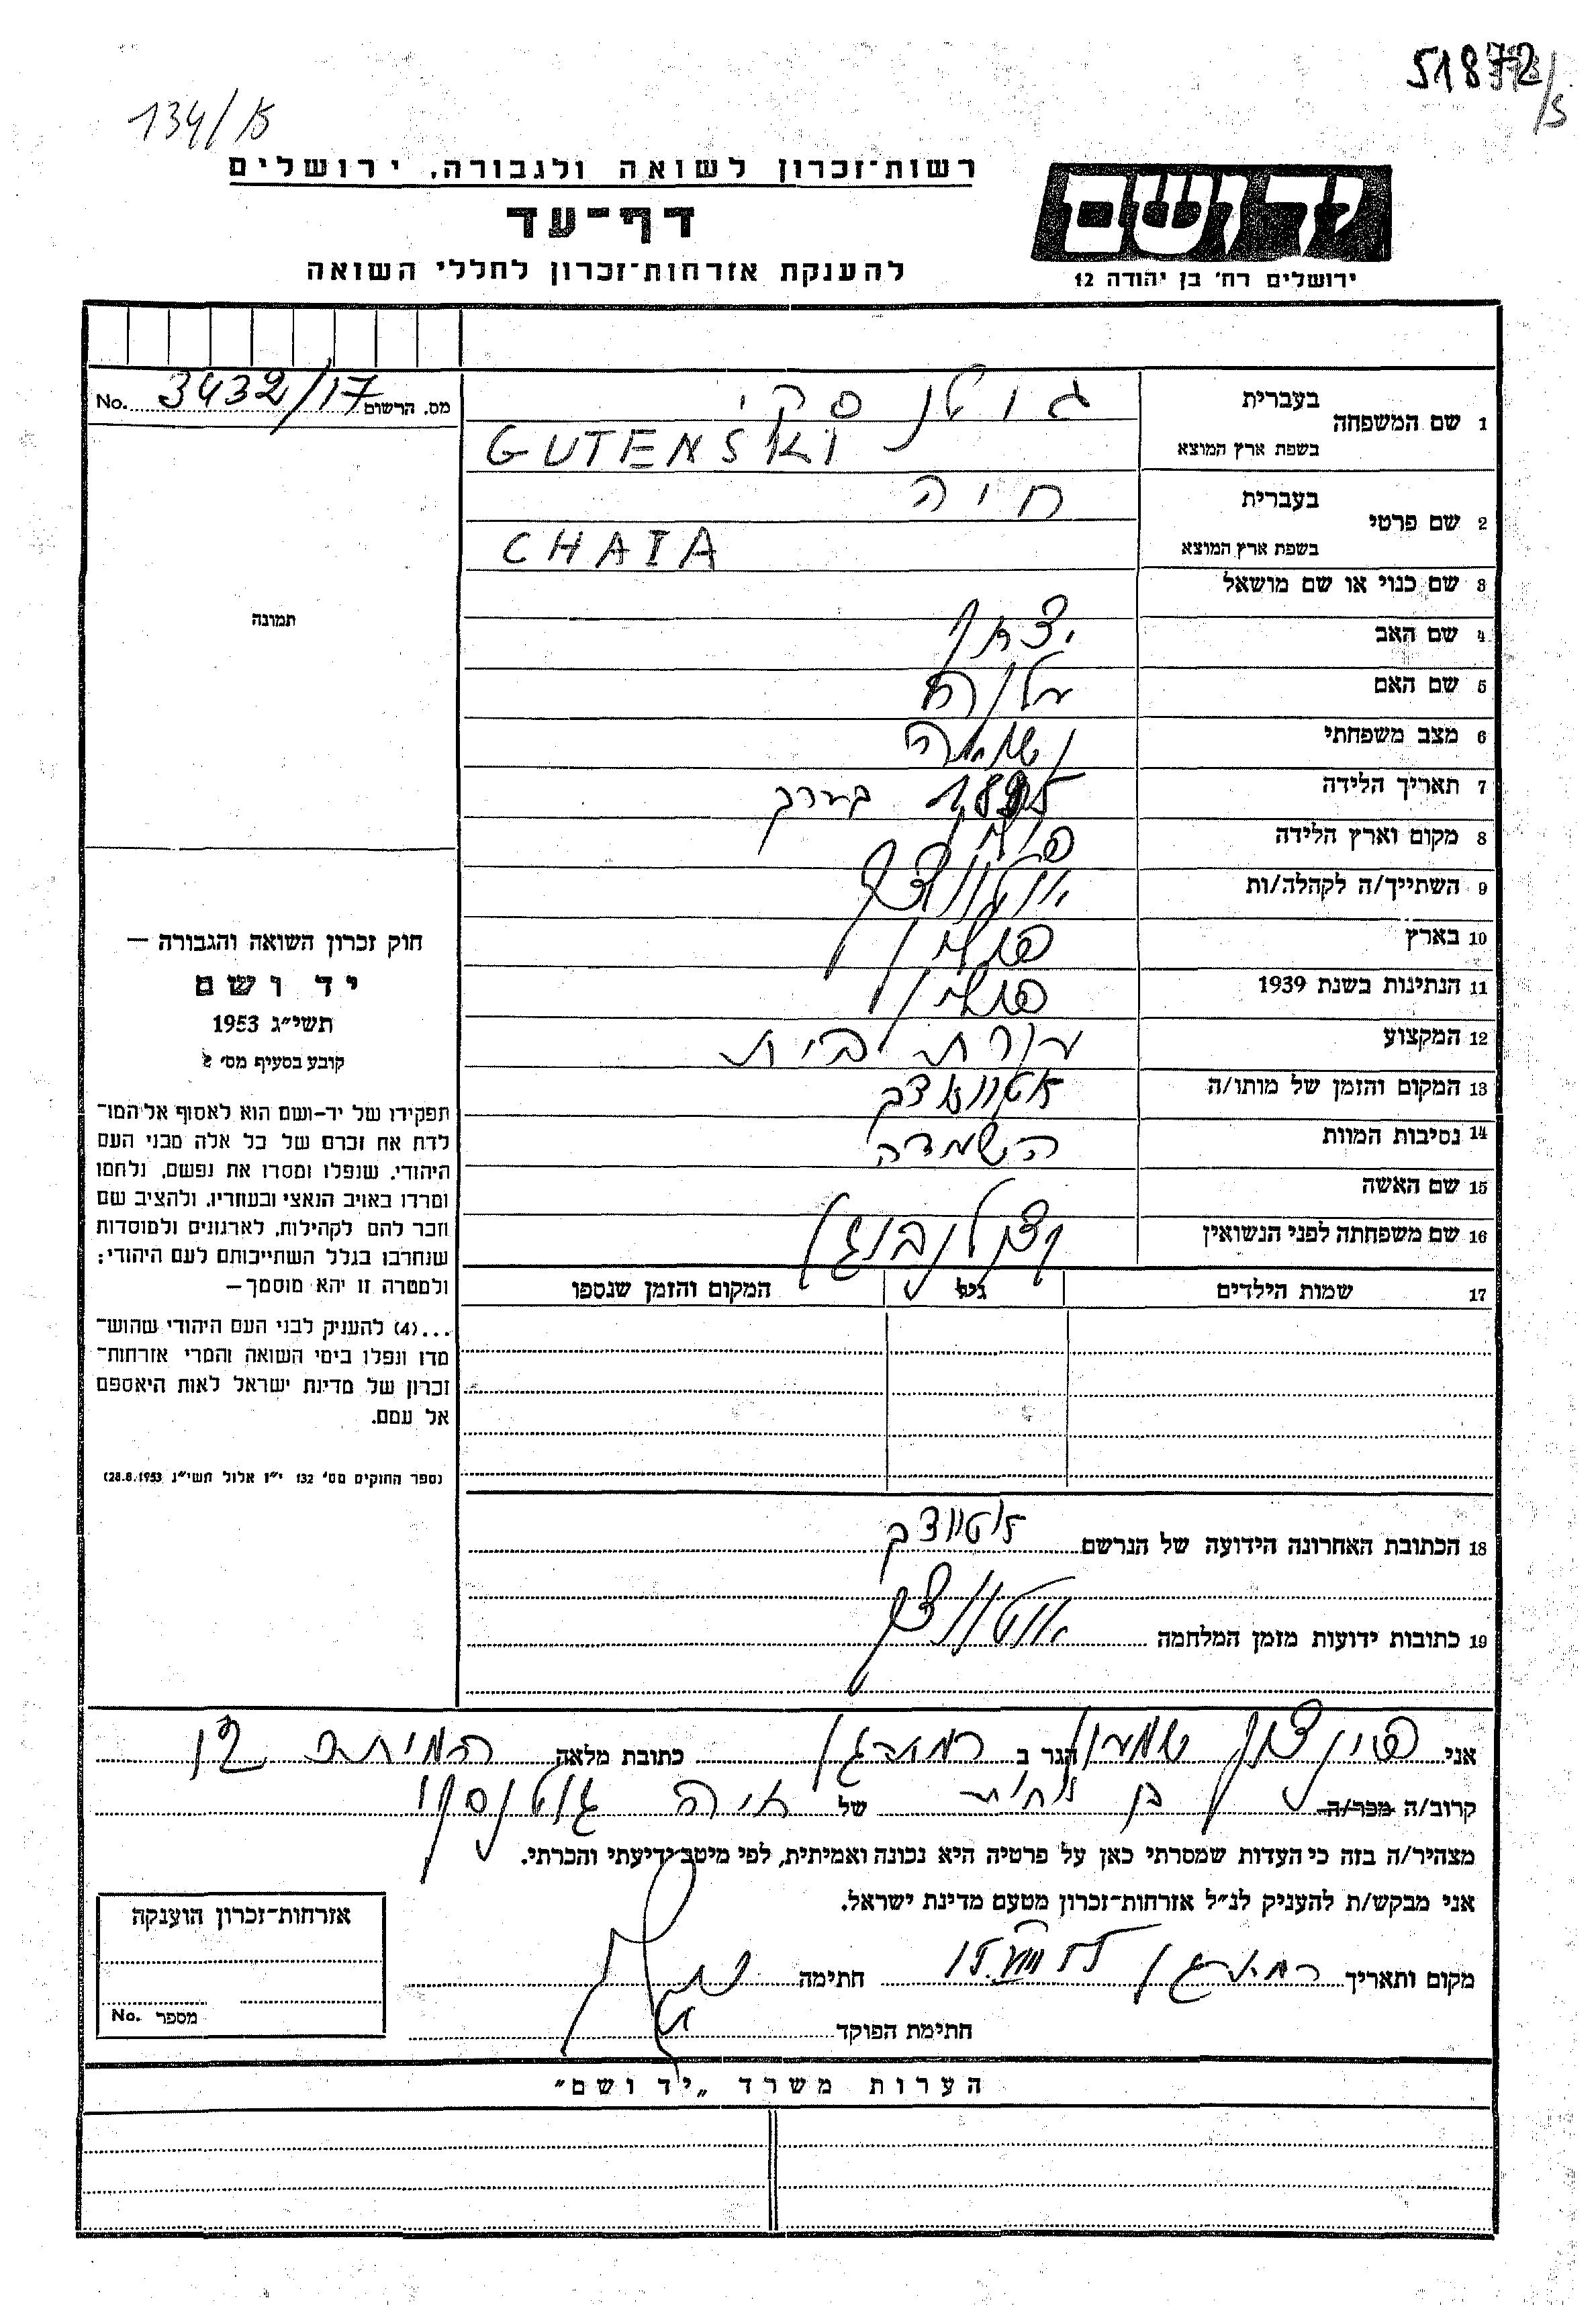 51872/5
134/15
רשות־זכרון לשואה ולגבורה, ירושלים
דף־עד
להענקת אזרחות־זכרון לחללי השואה
יד ושם
ירושלים רח' בן יהודה 12
מס. הרשום 3432/17 No.
1 שם המשפחה
בעברית גוטנסקי
בשפת ארץ המוצא GUTENSKI
2 שם פרטי
בעברית חיה
בשפת ארץ המוצא CHAIA
3 שם כנוי או שם מושאל
4 שם האב יצחק
5 שם האם
6 מצב משפחתי נשואה
7 תאריך הלידה 1895 בערך
8 מקום וארץ הלידה פולין
9 השתייך/ה לקהלה/ות
10 בארץ פולין
11 הנתינות בשנת 1939 פולין
12 המקצוע עקרת בית
13 המקום והזמן של מותו/ה
14 נסיבות המוות השמדה
15 שם האשה
16 שם משפחתה לפני הנשואין
17 שמות הילדים גיל המקום והזמן שנספו
18 הכתובת האחרונה הידועה של הנרשם
19 כתובות ידועות מזמן המלחמה
תמונה
חוק זכרון השואה והגבורה —
יד ושם
תשי״ג 1953
קובע בסעיף מס' 2
תפקידו של יד-ושם הוא לאסוף אל המו־
לדת את זכרם של כל אלה מבני העם
היהודי, שנפלו ומסרו את נפשם, נלחמו
ומרדו באויב הנאצי ובעוזריו, ולהציב שם
וזכר להם לקהילות, לארגונים ולמוסדות
שנחרבו בגלל השתייכותם לעם היהודי;
ולמטרה זו יהא מוסמך—
...(4) להעניק לבני העם היהודי שהוש־
מדו ונפלו בימי השואה והמרי אזרחות־
זכרון של מדינת ישראל לאות היאספם
אל עמם.
(ספר החוקים מס' 132 י״ז אלול תשי״ג 28.8.1953)
אני שמעון הגר ב כתובת מלאה
קרוב/ה מכר/ה בן של חיה גוטנסקי
מצהיר/ה בזה כי העדות שמסרתי כאן על פרטיה היא נכונה ואמיתית, לפי מיטב ידיעתי והכרתי.
אני מבקש/ת להעניק לנ״ל אזרחות־זכרון מטעם מדינת ישראל.
מקום ותאריך 15.VIII.55 חתימה
חתימת הפוקד
אזרחות־זכרון הוענקה
מספר No.
הערות משרד „יד ושם"